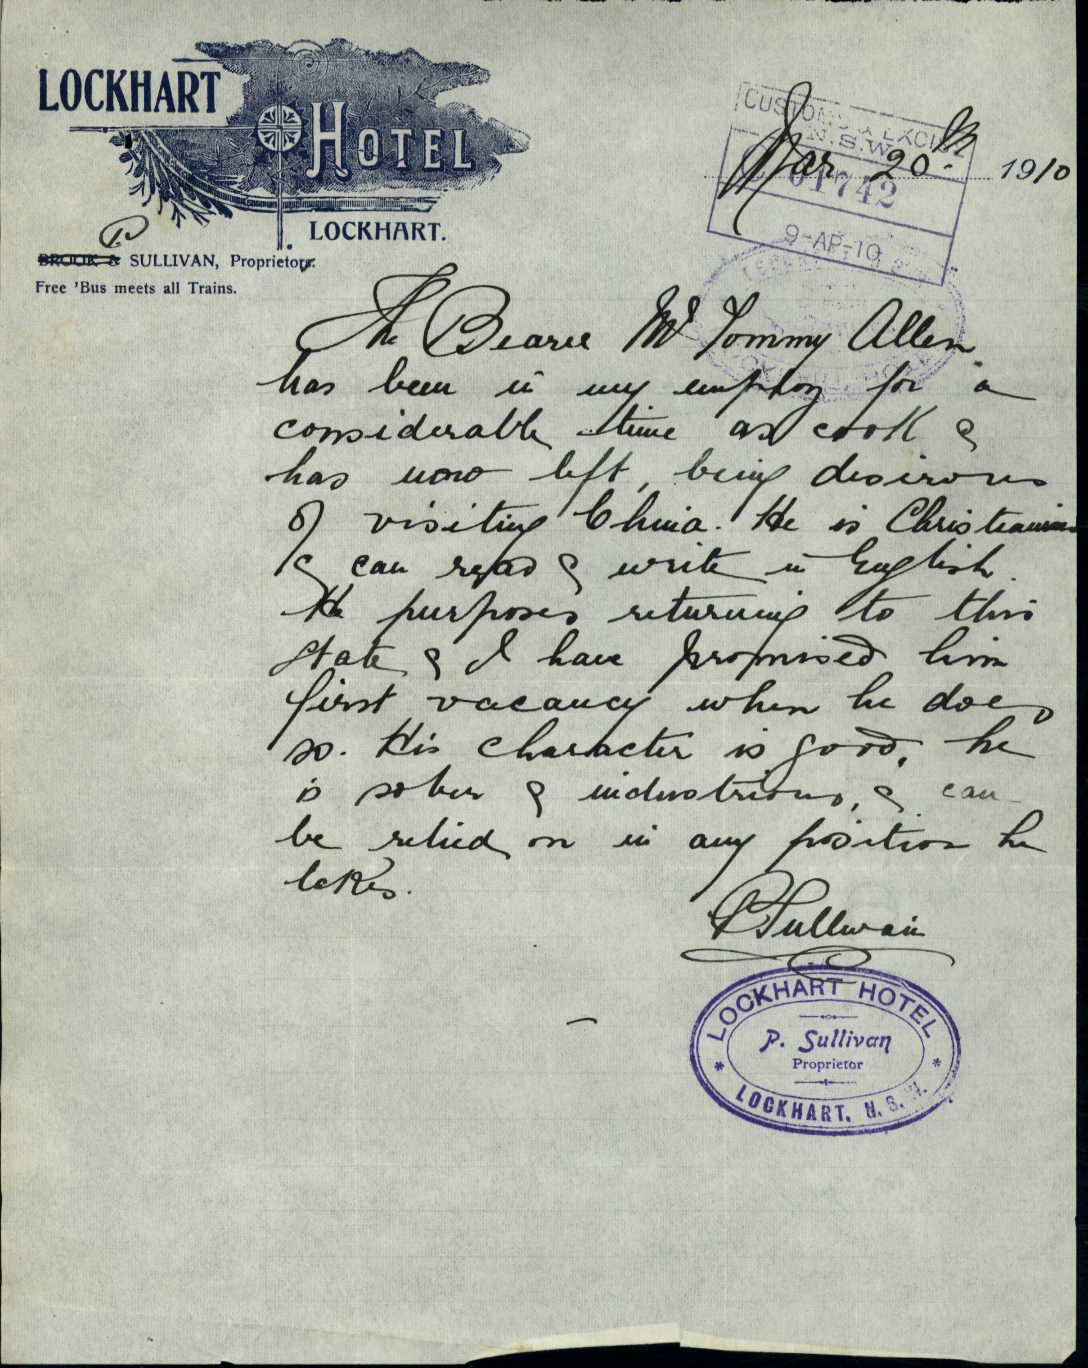 LOCKHART
HOTEL
LOCKHART.
P.
BROOK & SULLIVAN, Proprietors.
Free 'Bus meets all Trains.
CUSTOMS & EXCISE
N.S.W.
01742
9-AP-10
Mar 20th 1910
The Bearer Mr Tommy Allen
has been in my employ for a
considerable time as cook &
has now left, being desirous
of visiting China. He is Christianised
& can read & write in English.
He purposes returning to this
state & I have promised him
first vacancy when he does
so. His character is good, he
is sober & industrious, & can
be relied on in any position he
takes.
P Sullivan
LOCKHART HOTEL
P. Sullivan
Proprietor
LOCKHART, N.S.W.